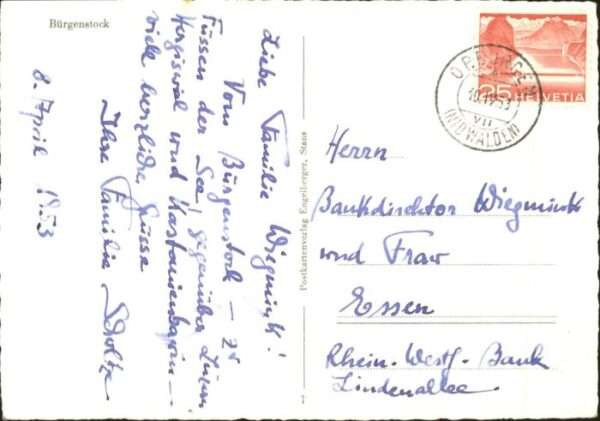 Bürgenstock
8. April 1953
Liebe Familie Wiegmink!
Vom Bürgenstock – zu
Füssen der See, gegenüber Luzern
Hergiswil und Kastanienbaum –
viele herzliche Grüsse
Ihre Familie Scholtz
Postkartenverlag Engelberger, Stans
25 HELVETIA
10.IV.53
VII
(NIDWALDEN)
Herrn
Bankdirektor Wiegmink
und Frau
Essen
Rhein.-Westf.-Bank
Lindenallee.